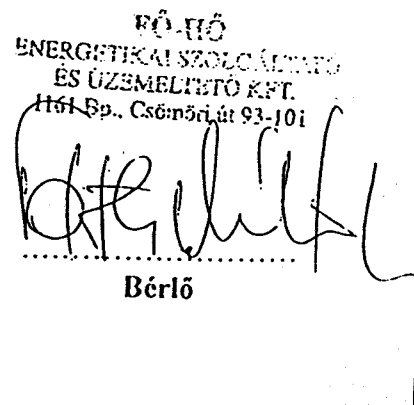 FŐ-HŐ
ENERGETIKAI SZOLGÁLTATÓ
ÉS ÜZEMELTETŐ KFT.
1161 Bp., Csömöri út 93-101
Bérlő